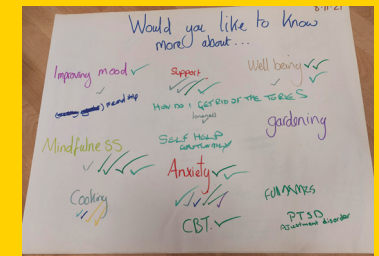 Would you like to know
more about...
Improving mood
Support
Well being
friendship
HOW DO I GET RID OF THE TORIES
gardening
Mindfulness
SELF HELP
Anxiety
Cooking
CBT.
PTSD
Adjustment disorder